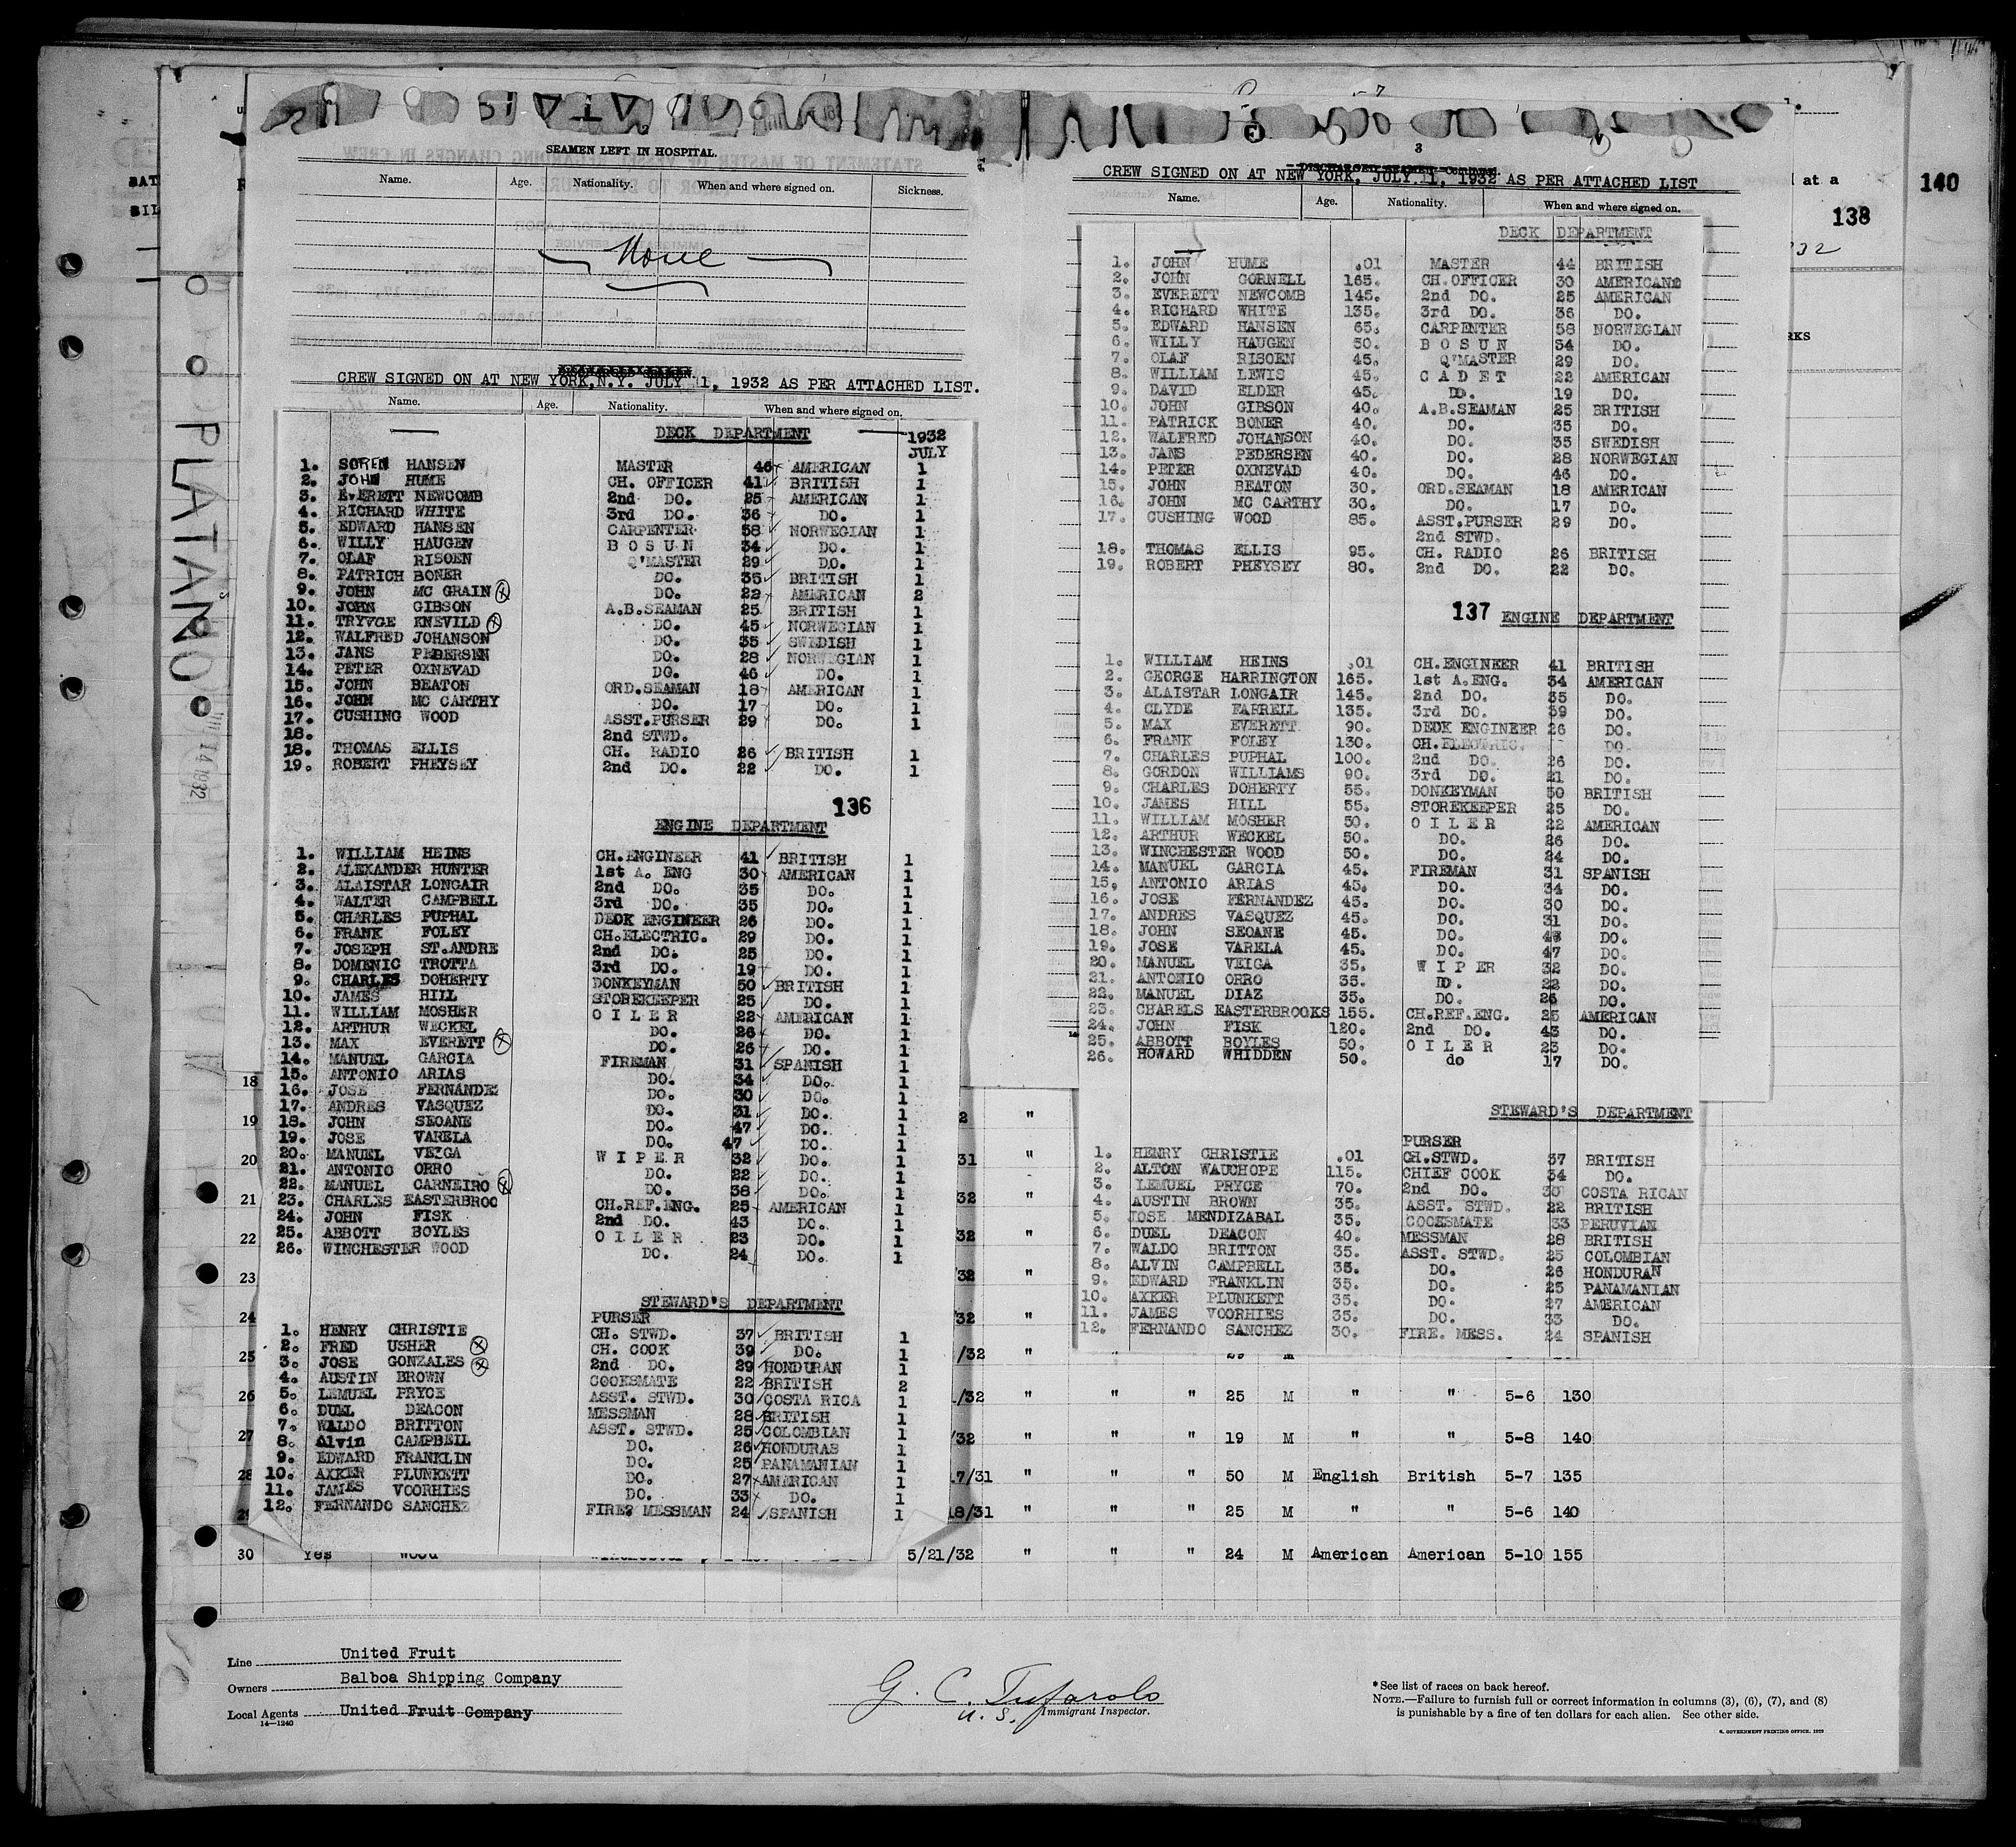 140
138
at a
PLATANO
SEAMEN LEFT IN HOSPITAL.
Name. Age. Nationality. When and where signed on. Sickness.
None
CREW SIGNED ON AT NEW YORK, N.Y. JULY 1, 1932 AS PER ATTACHED LIST.
Name. Age. Nationality. When and where signed on.
DECK DEPARTMENT 1932
JULY
1. SOREN HANSEN MASTER 46 AMERICAN 1
2. JOHN HUME CH. OFFICER 41 BRITISH 1
3. EVERETT NEWCOMB 2nd DO. 25 AMERICAN 1
4. RICHARD WHITE 3rd DO. 36 DO. 1
5. EDWARD HANSEN CARPENTER 58 NORWEGIAN 1
6. WILLY HAUGEN BOSUN 34 DO. 1
7. OLAF RISOEN Q'MASTER 29 DO. 1
8. PATRICH BONER DO. 35 BRITISH 1
9. JOHN MC GRAIN DO. 22 AMERICAN 2
10. JOHN GIBSON A.B.SEAMAN 25 BRITISH 1
11. TRYVGE KNEVILD DO. 45 NORWEGIAN 1
12. WALFRED JOHANSON DO. 35 SWEDISH 1
13. JANS PEDERSEN DO. 28 NORWEGIAN 1
14. PETER OXNEVAD DO. 46 DO. 1
15. JOHN BEATON ORD.SEAMAN 18 AMERICAN 1
16. JOHN MC CARTHY DO. 17 DO. 1
17. CUSHING WOOD ASST.PURSER 29 DO. 1
18. 2nd STWD.
18. THOMAS ELLIS CH. RADIO 26 BRITISH 1
19. ROBERT PHEYSEY 2nd DO. 22 DO. 1
136
ENGINE DEPARTMENT
1. WILLIAM HEINS CH.ENGINEER 41 BRITISH 1
2. ALEXANDER HUNTER 1st A. ENG 30 AMERICAN 1
3. ALAISTAR LONGAIR 2nd DO. 35 DO. 1
4. WALTER CAMPBELL 3rd DO. 35 DO. 1
5. CHARLES PUPHAL DECK ENGINEER 26 DO. 1
6. FRANK FOLEY CH.ELECTRIC. 29 DO. 1
7. JOSEPH ST.ANDRE 2nd DO. 25 DO. 1
8. DOMENIC TROTTA 3rd DO. 19 DO. 1
9. CHARLES DOHERTY DONKEYMAN 50 BRITISH 1
10. JAMES HILL STOREKEEPER 25 DO. 1
11. WILLIAM MOSHER OILER 22 AMERICAN 1
12. ARTHUR WECKEL DO. 26 DO. 1
13. MAX EVERETT DO. 26 DO. 1
14. MANUEL GARCIA FIREMAN 31 SPANISH 1
15. ANTONIO ARIAS DO. 34 DO. 1
16. JOSE FERNANDEZ DO. 30 DO. 1
17. ANDRES VASQUEZ DO. 31 DO. 1
18. JOHN SEOANE DO. 47 DO. 1
19. JOSE VARELA DO. 47 DO. 1
20. MANUEL VEIGA WIPER 32 DO. 1
21. ANTONIO ORRO DO. 22 DO. 1
22. MANUEL CARNEIRO DO. 38 DO. 1
23. CHARLES EASTERBROO CH.REF.ENG. 25 AMERICAN 1
24. JOHN FISK 2nd DO. 43 DO. 1
25. ABBOTT BOYLES OILER 23 DO. 1
26. WINCHESTER WOOD DO. 24 DO. 1
STEWARD'S DEPARTMENT
PURSER
1. HENRY CHRISTIE CH. STWD. 37 BRITISH 1
2. FRED USHER CH. COOK 39 DO. 1
3. JOSE GONZALES 2nd DO. 29 HONDURAN 1
4. AUSTIN BROWN COOKSMATE 22 BRITISH 2
5. LEMUEL PRYCE ASST. STWD. 30 COSTA RICA 1
6. DUEL DEACON MESSMAN 28 BRITISH 1
7. WALDO BRITTON ASST. STWD. 25 COLOMBIAN 1
8. Alvin CAMPBELL DO. 26 HONDURAS 1
9. EDWARD FRANKLIN DO. 25 PANAMANIAN 1
10. AXKER PLUNKETT DO. 27 AMERICAN 1
11. JAMES VOORHIES DO. 33 DO. 1
12. FERNANDO SANCHEZ FIRE? MESSMAN 24 SPANISH 1
3
CREW SIGNED ON AT NEW YORK, JULY 11, 1932 AS PER ATTACHED LIST
Name. Age. Nationality. When and where signed on.
DECK DEPARTMENT
1. JOHN HUME .01 MASTER 44 BRITISH
2. JOHN GORNELL 165. CH.OFFICER 30 AMERICAN
3. EVERETT NEWCOMB 145. 2nd DO. 25 AMERICAN
4. RICHARD WHITE 135. 3rd DO. 36 DO.
5. EDWARD HANSEN 65. CARPENTER 58 NORWEGIAN
6. WILLY HAUGEN 50. BOSUN 34 DO.
7. OLAF RISOEN 45. Q'MASTER 29 DO.
8. WILLIAM LEWIS 45. CADET 22 AMERICAN
9. DAVID ELDER 45. DO. 19 DO.
10. JOHN GIBSON 40. A.B.SEAMAN 25 BRITISH
11. PATRICK BONER 40. DO. 35 DO.
12. WALFRED JOHANSON 40. DO. 35 SWEDISH
13. JANS PEDERSEN 40. DO. 28 NORWEGIAN
14. PETER OXNEVAD 40. DO. 46 DO.
15. JOHN BEATON 30. ORD.SEAMAN 18 AMERICAN
16. JOHN MC CARTHY 30. DO. 17 DO.
17. CUSHING WOOD 85. ASST.PURSER 29 DO.
2nd STWD.
18. THOMAS ELLIS 95. CH. RADIO 26 BRITISH
19. ROBERT PHEYSEY 80. 2nd DO. 22 DO.
137 ENGINE DEPARTMENT
1. WILLIAM HEINS .01 CH.ENGINEER 41 BRITISH
2. GEORGE HARRINGTON 165. 1st A.ENG. 34 AMERICAN
3. ALAISTAR LONGAIR 145. 2nd DO. 35 DO.
4. CLYDE FARRELL 135. 3rd DO. 39 DO.
5. MAX EVERETT 90. DECK ENGINEER 26 DO.
6. FRANK FOLEY 130. CH.ELECTRIC. DO.
7. CHARLES PUPHAL 100. 2nd DO. 26 DO.
8. GORDON WILLIAMS 90. 3rd DO. 21 DO.
9. CHARLES DOHERTY 55. DONKEYMAN 50 BRITISH
10. JAMES HILL 55. STOREKEEPER 25 DO.
11. WILLIAM MOSHER 50. OILER 22 AMERICAN
12. ARTHUR WECKEL 50. DO. 26 DO.
13. WINCHESTER WOOD 50. DO. 24 DO.
14. MANUEL GARCIA 45. FIREMAN 31 SPANISH
15. ANTONIO ARIAS 45. DO. 34 DO.
16. JOSE FERNANDEZ 45. DO. 30 DO.
17. ANDRES VASQUEZ 45. DO. 31 DO.
18. JOHN SEOANE 45. DO. DO.
19. JOSE VARELA 45. DO. 47 DO.
20. MANUEL VEIGA 35. WIPER 32 DO.
21. ANTONIO ORRO 35. DO. 22 DO.
22. MANUEL DIAZ 35. DO. 26 DO.
23. CHARELS EASTERBROOKS 155. CH.REF.ENG. 25 AMERICAN
24. JOHN FISK 120. 2nd DO. 43 DO.
25. ABBOTT BOYLES 50. OILER 23 DO.
26. HOWARD WHIDDEN 50. do 17 DO.
STEWARD'S DEPARTMENT
PURSER
1. HENRY CHRISTIE .01 CH.STWD. 37 BRITISH
2. ALTON WAUCHOPE 115. CHIEF COOK 34 DO.
3. LEMUEL PRYCE 70. 2nd DO. 30 COSTA RICAN
4. AUSTIN BROWN 35. ASST. STWD. 22 BRITISH
5. JOSE MENDIZABAL 35. COOKSMATE 33 PERUVIAN
6. DUEL DEACON 40. MESSMAN 28 BRITISH
7. WALDO BRITTON 35. ASST. STWD. 25 COLOMBIAN
8. ALVIN CAMPBELL 35. DO. 26 HONDURAN
9. EDWARD FRANKLIN 35. DO. 25 PANAMANIAN
10. AXKER PLUNKETT 35. DO. 27 AMERICAN
11. JAMES VOORHIES 35. DO. 33 DO.
12. FERNANDO SANCHEZ 30. FIRE. MESS. 24 SPANISH
18
19 2 "
20 31 "
21 32 "
22 32 "
23 32 "
24 32 "
25 /32 " " " 29 M
26 1/32 " " " 25 M " " 5-6 130
27 /32 " " " 19 M " " 5-8 140
28 17/31 " " " 50 M English British 5-7 135
29 18/31 " " " 25 M " " 5-6 140
30 Yes Wood Winchester 5/21/32 " " " 24 M American American 5-10 155
Line United Fruit
Owners Balboa Shipping Company
Local Agents United Fruit Company
14—1240
G. C. Tufarolo
U. S. Immigrant Inspector.
* See list of races on back hereof.
NOTE.—Failure to furnish full or correct information in columns (3), (6), (7), and (8)
is punishable by a fine of ten dollars for each alien. See other side.